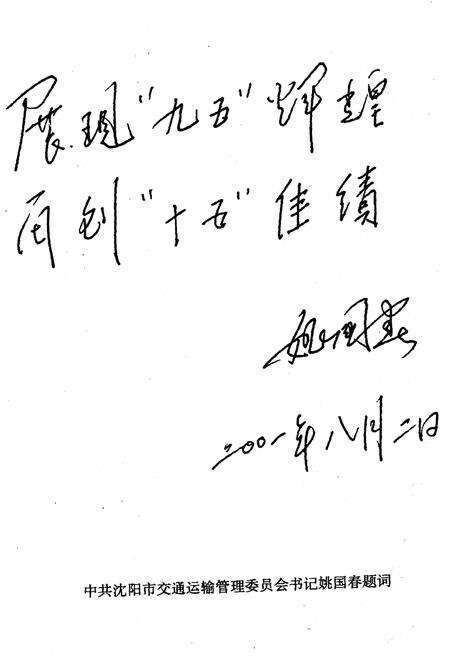 展现"九五"辉煌
再创"十五"佳绩
姚国春
二〇〇一年八月二日
中共沈阳市交通运输管理委员会书记姚国春题词